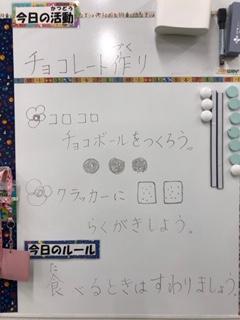 かつどう
今日の活動
づく
チョコレート作り
コロコロ
チョコボールをつくろう。
クラッカーに
らくがきしよう。
今日のルール
た
食べるときはすわりましょう。